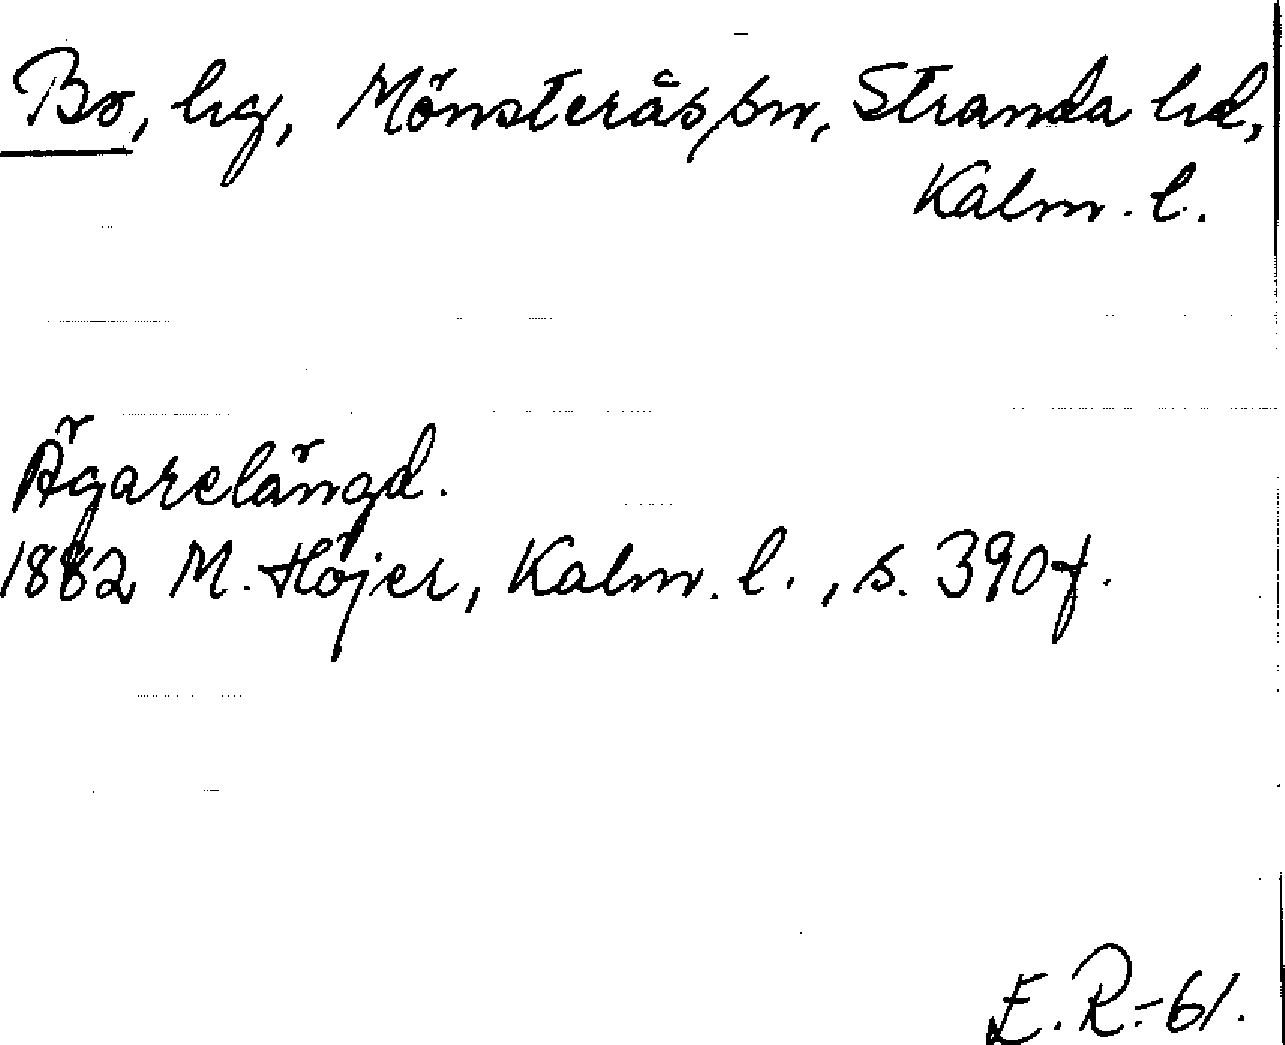 Bo, hg, Mönsterås sn, Stranda hd,
Kalm. l.
Ägarelängd.
1882 M. Höjer, Kalm. l., s. 390 f.
E. R. -61.